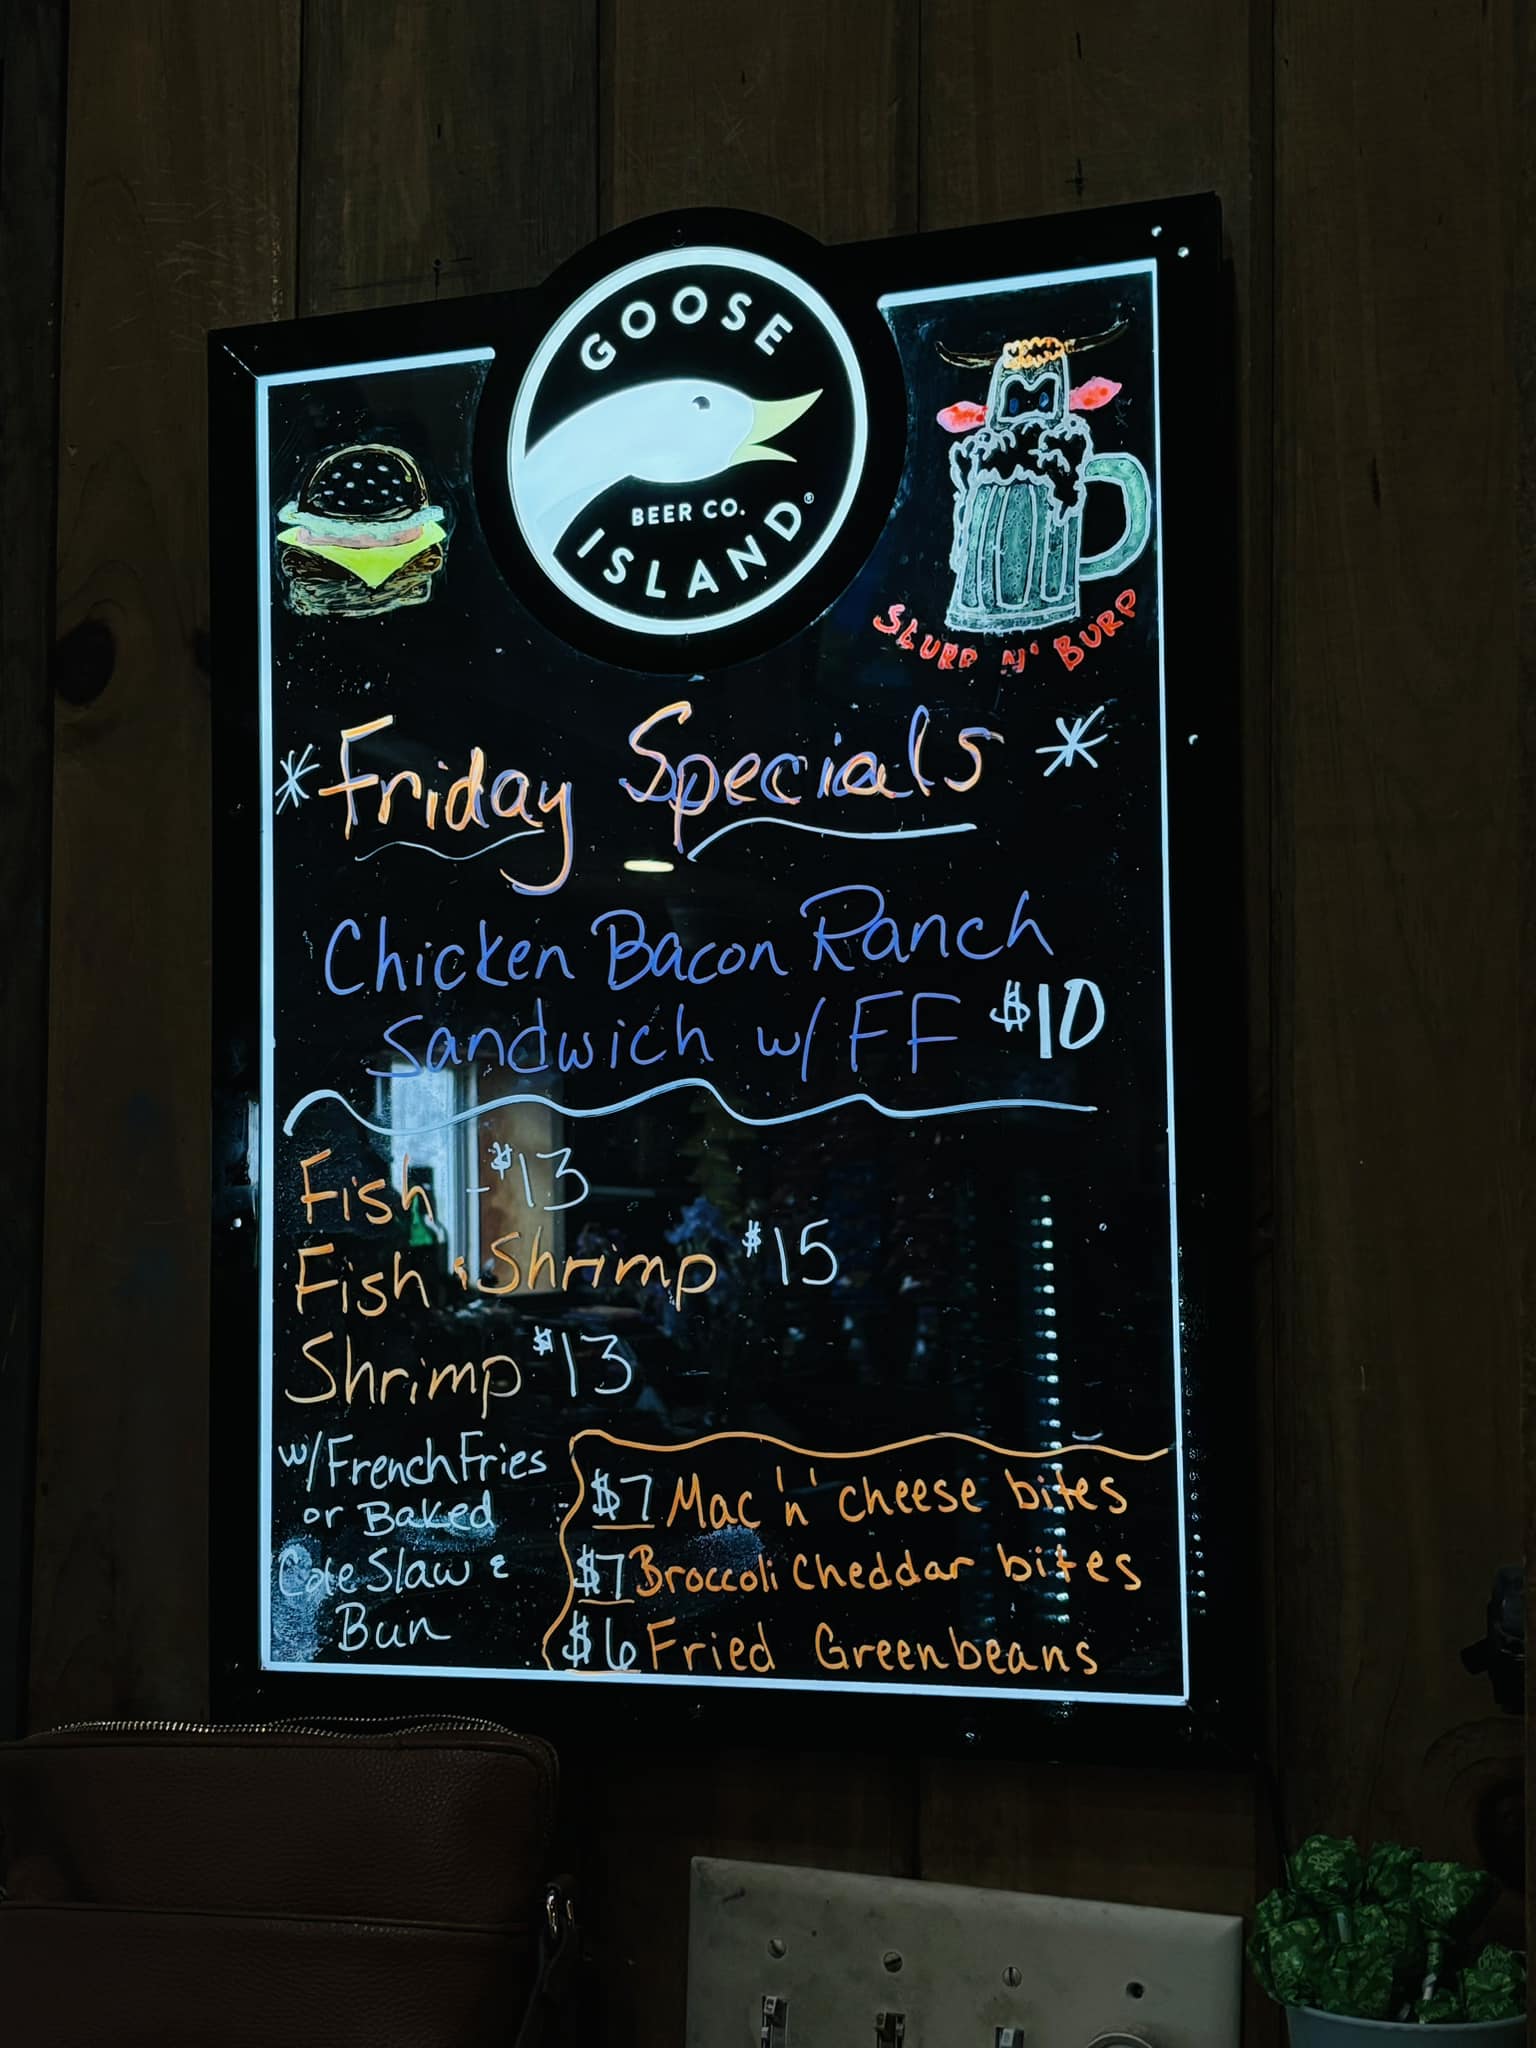 GOOSE
BEER CO.
ISLAND®
SLURP N' BURP
* Friday Specials *
Chicken Bacon Ranch
Sandwich w/ FF $10
Fish - $13
Fish & Shrimp $15
Shrimp $13
w/ French Fries
or Baked
Cole Slaw &
Bun
$7 Mac 'n' cheese bites
$7 Broccoli Cheddar bites
$6 Fried Greenbeans